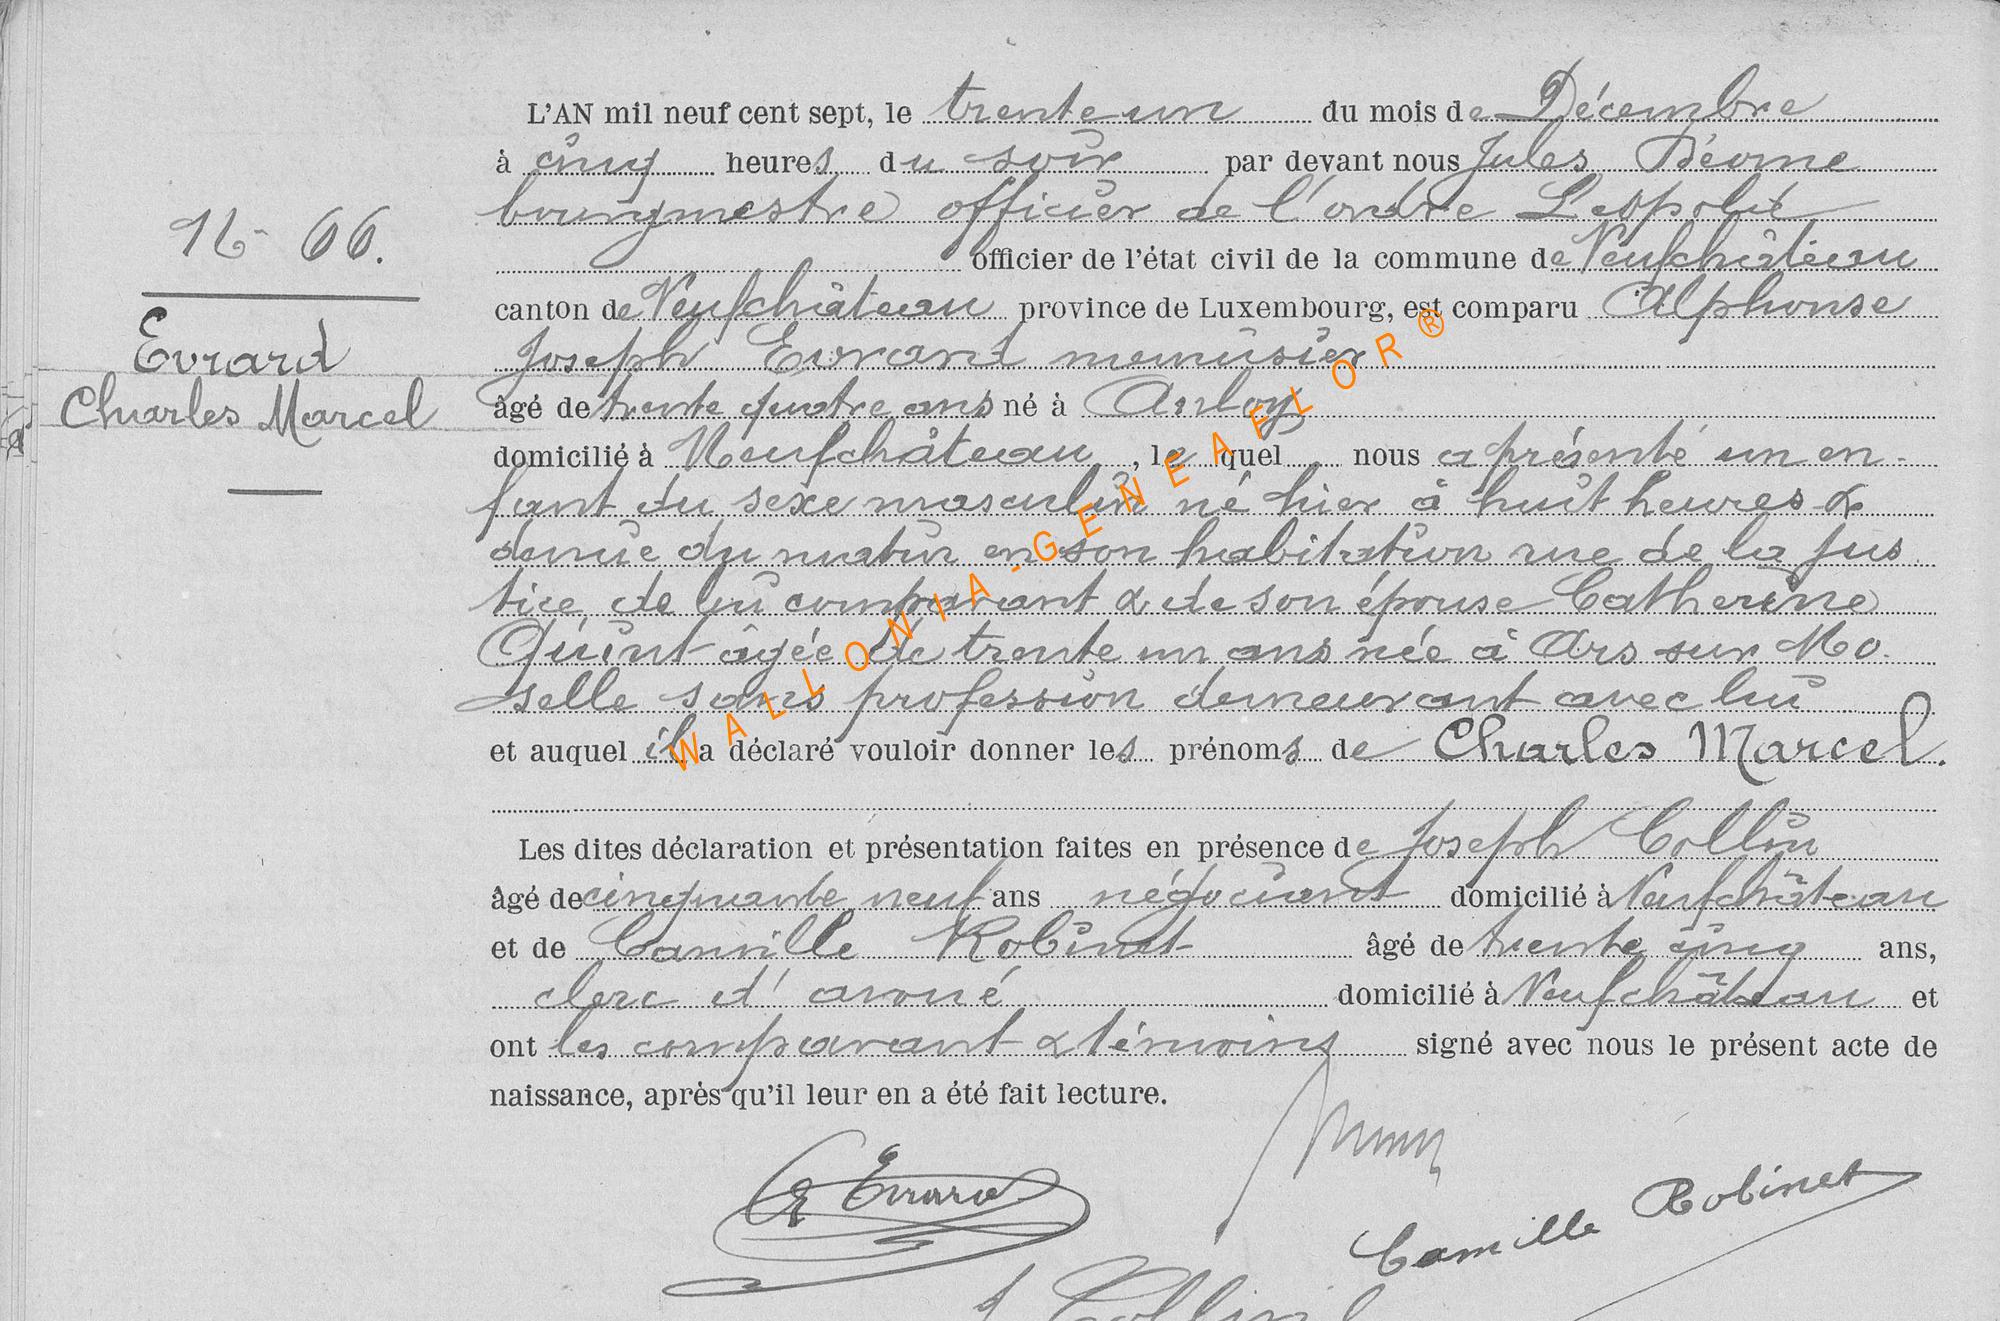 L'AN mil neuf cent sept, le trente un du mois de Décembre
à cinq heures du soir par devant nous Jules
bourgmestre officier de l'ordre Léopold
N- 66.
officier de l'état civil de la commune de Neufchâteau
canton de Neufchâteau province de Luxembourg, est comparu Alphonse
Evrard
Joseph Evrard menuisier
Charles Marcel
âgé de trente quatre ans né à Anloy
domicilié à Neufchâteau, le quel nous a présenté un en-
fant du sexe masculin né hier à huit heures &
demie du matin en son habitation rue de la Jus
tice de lui comparant & de son épouse Catherine
Quint âgée de trente un ans née à Ars sur Mo-
selle sans profession demeurant avec lui
et auquel il a déclaré vouloir donner les prénoms de Charles Marcel.
Les dites déclaration et présentation faites en présence de Joseph Collin
âgé de cinquante neuf ans négociant domicilié à Neufchâteau
et de Camille Robinet âgé de trente cinq ans,
clerc d'avoué domicilié à Neufchâteau et
ont les comparant & témoins signé avec nous le présent acte de
naissance, après qu'il leur en a été fait lecture.
Evrard
Camille Robinet
J Collin
WALLONIA-GENEAFLOR®